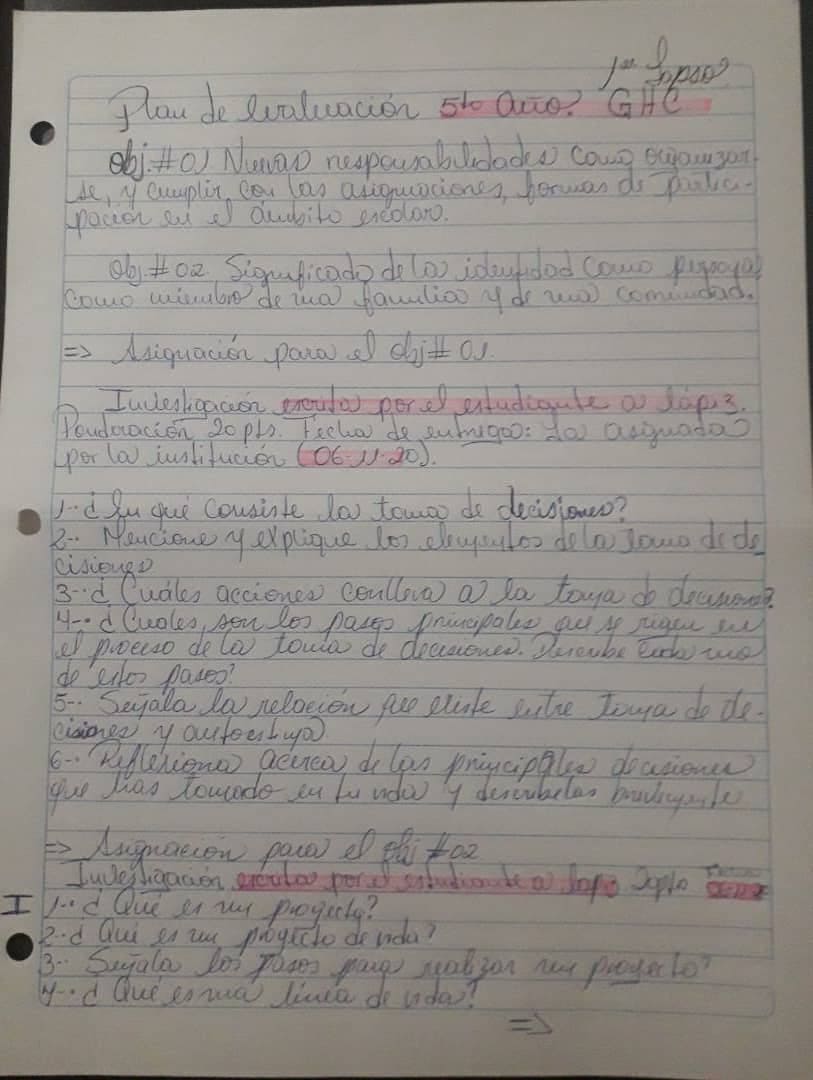 1er Lapso
Plan de Evaluación 5to Año. GHC
Obj. #01 Nuevas responsabilidades como organizar-
se, y cumplir con las asignaciones, formas de partici-
pación en el ámbito escolar.
Obj. #02 Significado de la identidad como persona,
como miembro de una familia y de una comunidad.
=> Asignación para el obj# 01.
Investigación escrita por el estudiante a lápiz.
Ponderación 20pts. Fecha de entrega: La asignada
por la institución (06-11-20).
1-. ¿En qué consiste la toma de decisiones?
2-. Mencione y explique los elementos de la toma de de
cisiones
3-. ¿Cuáles acciones conlleva a la toma de decisiones?
4-. ¿Cuales son los pasos principales que se rigen en
el proceso de la toma de decisiones. Describe cada uno
de estos pasos?
5-. Señala la relación que existe entre toma de de-
cisiones y autoestima
6-. Reflexiona acerca de las principales decisiones
que has tomado en tu vida y descríbelas brevemente
=> Asignación para el obj #02
Investigación escrita por el estudiante a lapiz
I 1-. ¿Qué es un proyecto?
2-. ¿Qué es un proyecto de vida?
3-. Señala los pasos para realizar un proyecto?
4-. ¿Qué es una línea de vida?
=>